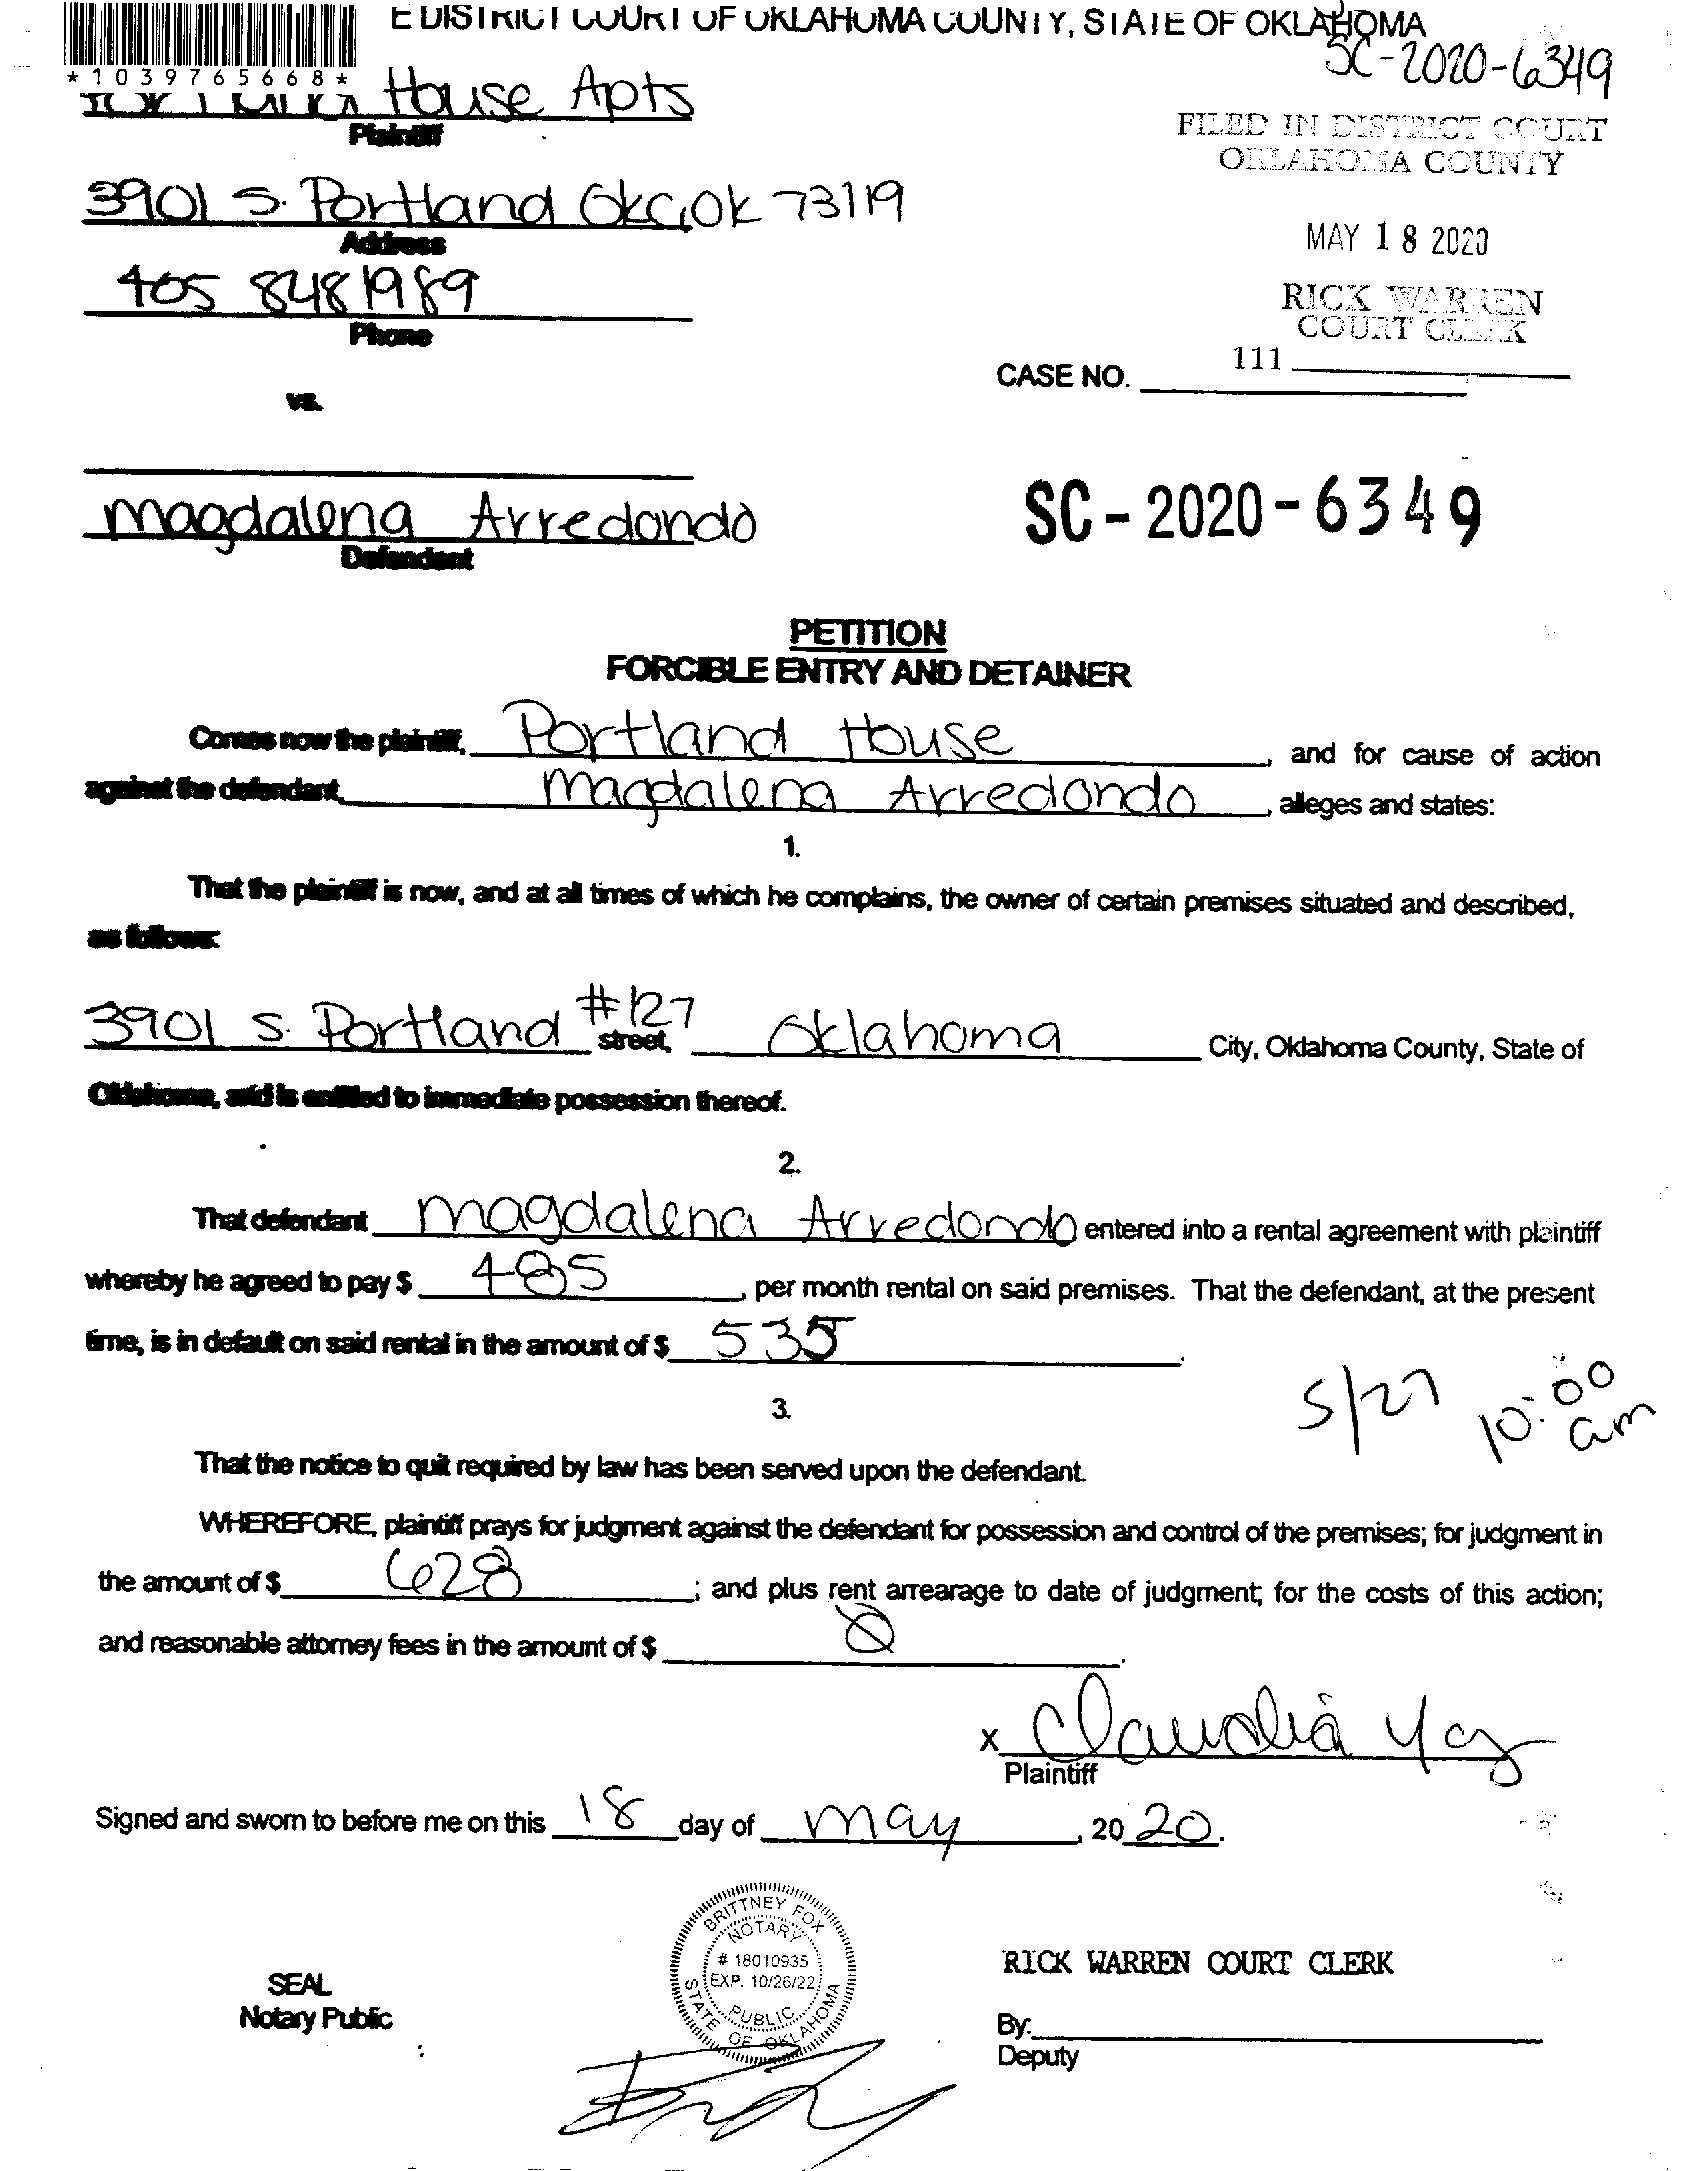 E DISTRICT COURT OF OKLAHOMA COUNTY, STATE OF OKLAHOMA
*1039765668*
SC-2020-6349
House Apts
Plaintiff
FILED IN DISTRICT COURT
OKLAHOMA COUNTY
3901 S. Portland OKC, OK 73119
Address
MAY 18 2020
405 848 1989
Phone
RICK WARREN
COURT CLERK
111
CASE NO.
vs.
Magdalena Arredondo
Defendant
SC-2020-6349
PETITION
FORCIBLE ENTRY AND DETAINER
Comes now the plaintiff, Portland House, and for cause of action
against the defendant, Magdalena Arredondo, alleges and states:
1.
That the plaintiff is now, and at all times of which he complains, the owner of certain premises situated and described,
as follows:
3901 S. Portland #127 street, Oklahoma City, Oklahoma County, State of
Oklahoma, and is entitled to immediate possession thereof.
2.
That defendant Magdalena Arredondo entered into a rental agreement with plaintiff
whereby he agreed to pay $ 485, per month rental on said premises. That the defendant, at the present
time, is in default on said rental in the amount of $ 535.
5/27 10:00 am
3.
That the notice to quit required by law has been served upon the defendant.
WHEREFORE, plaintiff prays for judgment against the defendant for possession and control of the premises; for judgment in
the amount of $ 628; and plus rent arrearage to date of judgment; for the costs of this action;
and reasonable attorney fees in the amount of $ Ø.
x Claudia
Plaintiff
Signed and sworn to before me on this 18 day of May, 2020.
BRITTNEY FOX
NOTARY
# 18010935
EXP. 10/26/22
PUBLIC
STATE OF OKLAHOMA
RICK WARREN COURT CLERK
SEAL
Notary Public
By:
Deputy